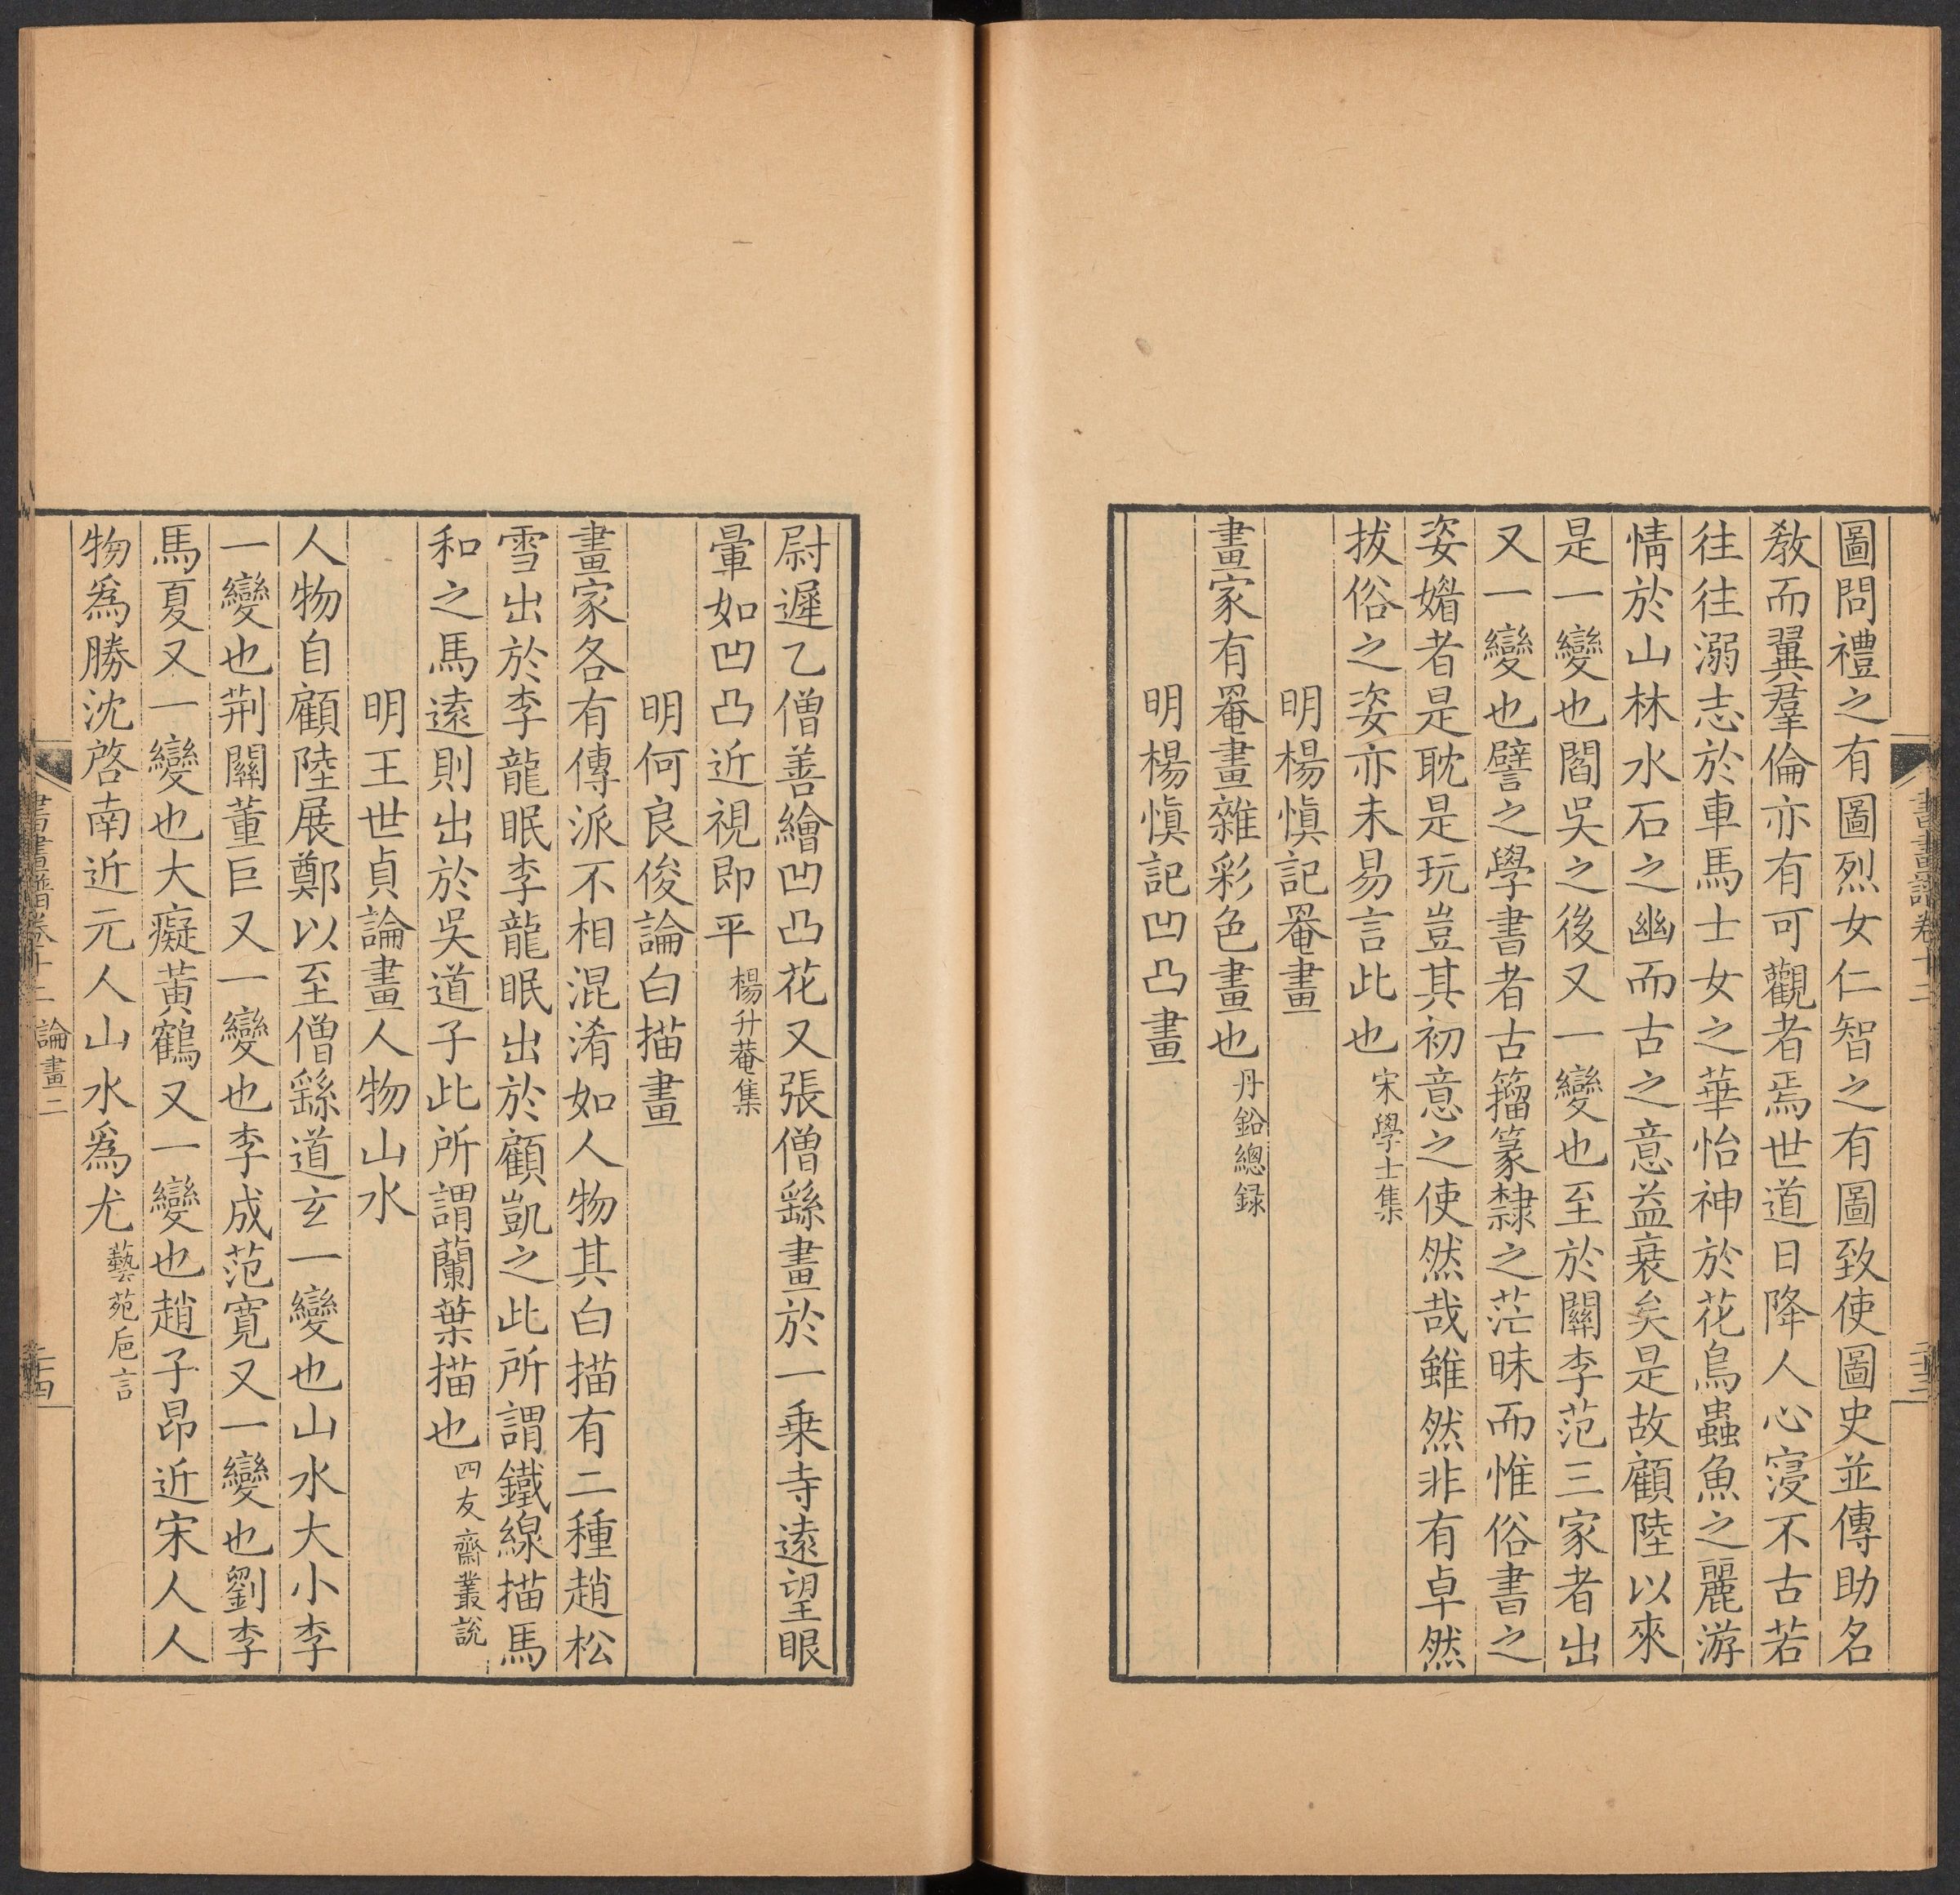 圖問禮之有圖烈女仁智之有圖致使圖史並傳助名
教而翼羣倫亦有可觀者焉世道日降人心寖不古若
往往溺志於車馬士女之華怡神於花鳥蟲魚之麗游
情於山林水石之幽而古之意益衰矣是故顧陸以來
是一變也閻吳之後又一變也至於關李范三家者出
又一變也譬之學書者古籀篆隸之茫昧而惟俗書之
姿媚者是耽是玩豈其初意之使然哉雖然非有卓然
拔俗之姿亦未易言此也宋學士集
明楊慎記罨畫
畫家有罨畫雜彩色畫也丹鉛總録
明楊慎記凹凸畫
書畫譜卷十二
尉遲乙僧善繪凹凸花又張僧繇畫於一乗寺遠望眼
暈如凹凸近視即平楊升菴集
明何良俊論白描畫
畫家各有傳派不相混淆如人物其白描有二種趙松
雪出於李龍眠李龍眠出於顧凱之此所謂鐵線描馬
和之馬遠則出於吳道子此所謂蘭葉描也四友齋叢說
明王世貞論畫人物山水
人物自顧陸展鄭以至僧繇道玄一變也山水大小李
一變也荆關董巨又一變也李成范寛又一變也劉李
馬夏又一變也大癡黃鶴又一變也趙子昂近宋人人
物爲勝沈啓南近元人山水爲尤藝苑巵言
書畫譜卷十二 論畫二